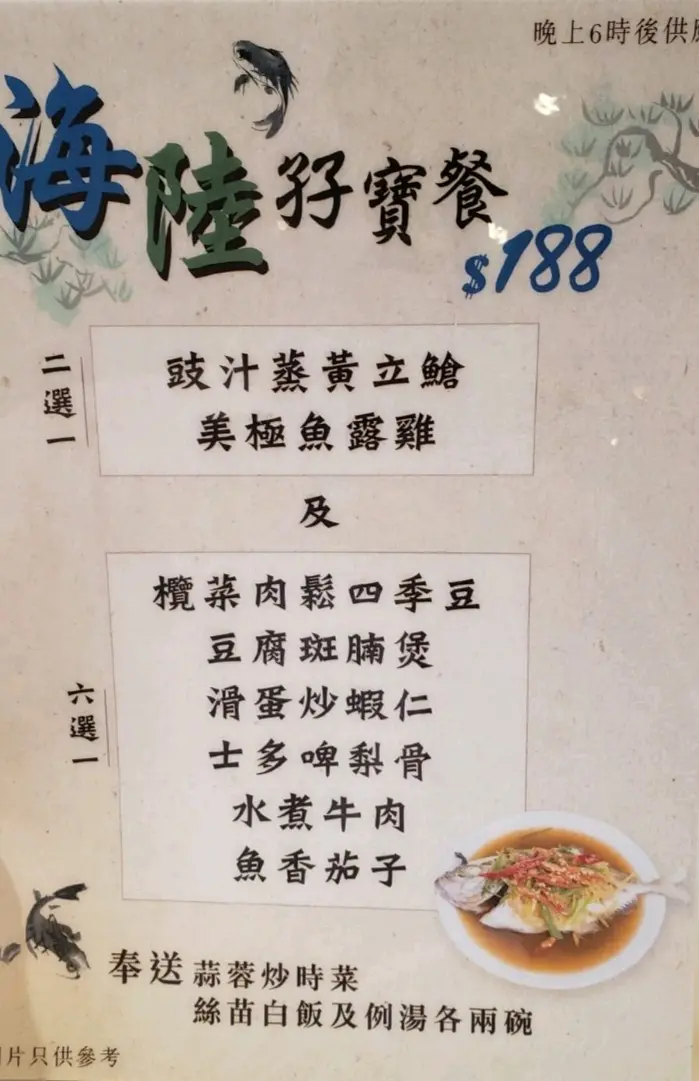 晚上6時後供應
海陸孖寶餐
$188
二選一
豉汁蒸黃立鯧
美極魚露雞
及
六選一
欖菜肉鬆四季豆
豆腐斑腩煲
滑蛋炒蝦仁
士多啤梨骨
水煮牛肉
魚香茄子
奉送 蒜蓉炒時菜
絲苗白飯及例湯各兩碗
片只供參考